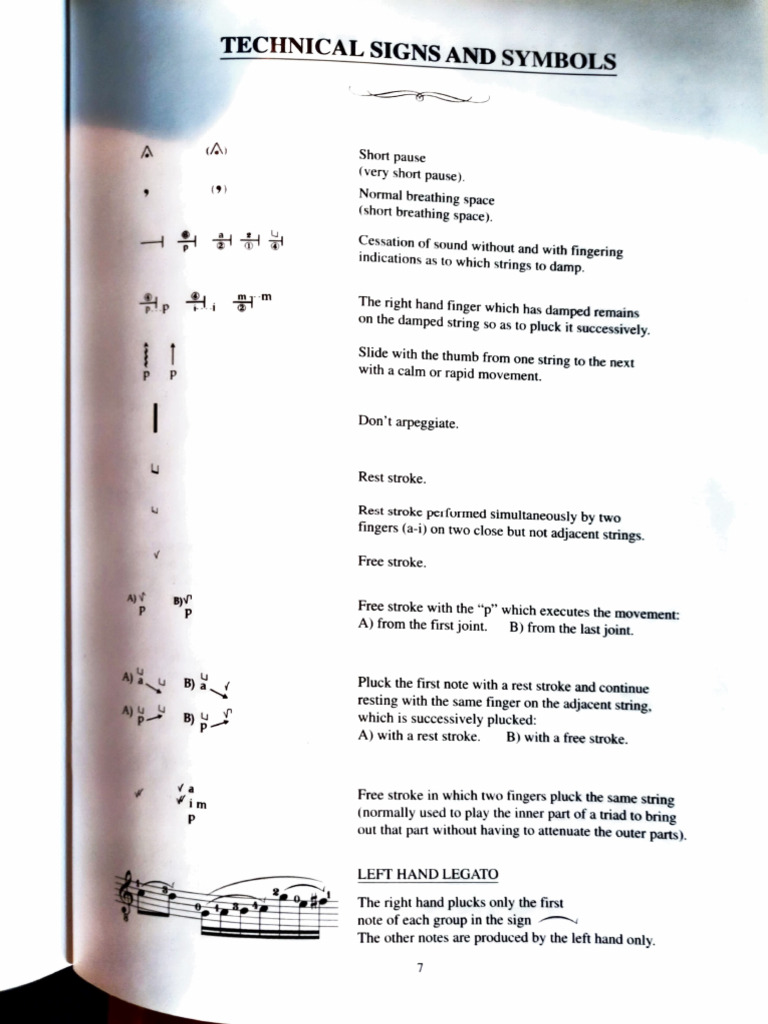 TECHNICAL SIGNS AND SYMBOLS
Short pause
(very short pause).
Normal breathing space
(short breathing space).
Cessation of sound without and with fingering
indications as to which strings to damp.
p a ② ① ④
The right hand finger which has damped remains
on the damped string so as to pluck it successively.
p....p ④ i....i m...m ②
Slide with the thumb from one string to the next
with a calm or rapid movement.
p p
Don't arpeggiate.
Rest stroke.
Rest stroke performed simultaneously by two
fingers (a-i) on two close but not adjacent strings.
Free stroke.
A) p B) p
Free stroke with the “p” which executes the movement:
A) from the first joint. B) from the last joint.
A) a B) a
A) p B) p
Pluck the first note with a rest stroke and continue
resting with the same finger on the adjacent string,
which is successively plucked:
A) with a rest stroke. B) with a free stroke.
a
i m
p
Free stroke in which two fingers pluck the same string
(normally used to play the inner part of a triad to bring
out that part without having to attenuate the outer parts).
LEFT HAND LEGATO
The right hand plucks only the first
note of each group in the sign
The other notes are produced by the left hand only.
7